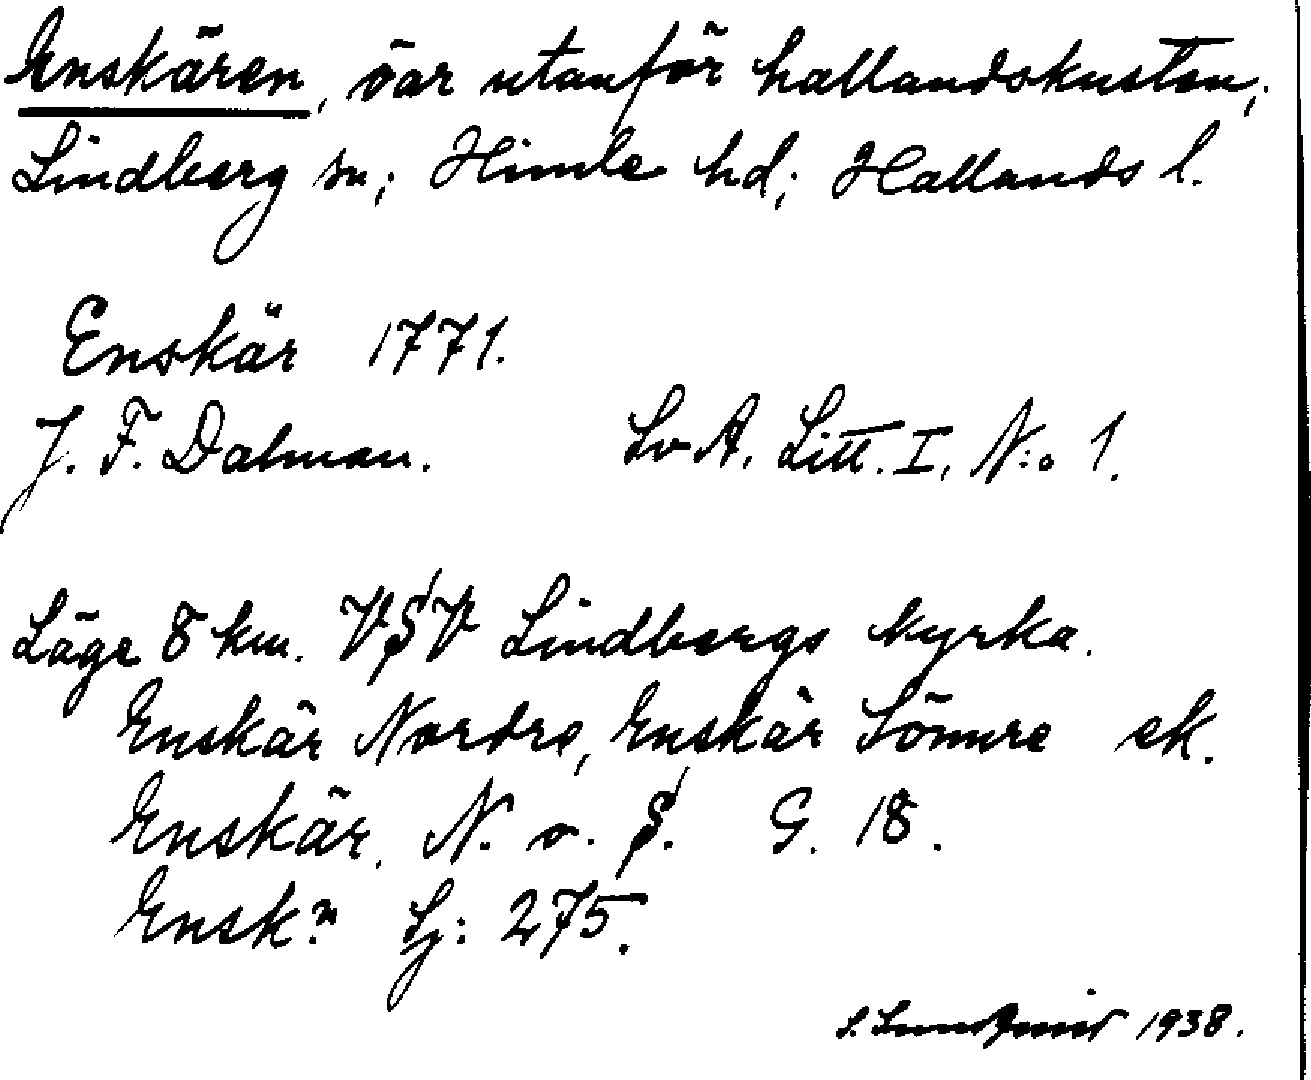 Enskären, öar utanför hallandskusten,
Lindberg sn; Himle hd; Hallands l.
Enskär 1771.
J. F. Dalman. Sv A. Litt. I, N:o 1.
Läge 8 km. VSV Lindbergs kyrka.
Enskär Nordre, Enskär Sönnre ek.
Enskär, N. o. S. G. 18.
Ensk:n Sj: 275.
S. Lundqvist 1938.